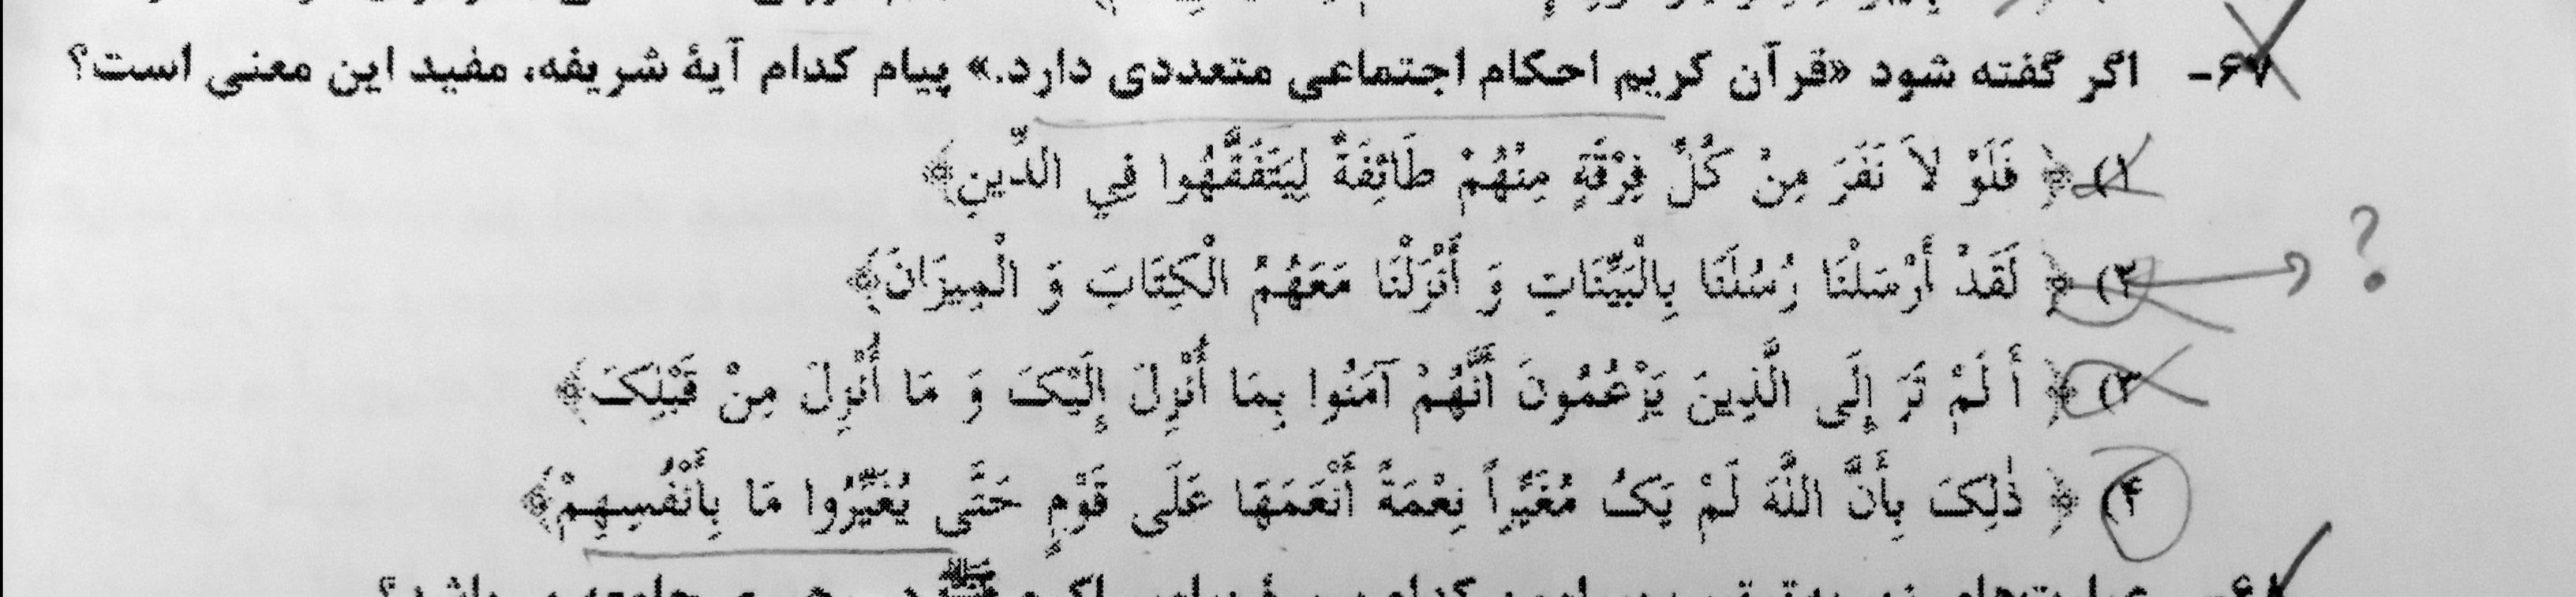 ۶۷- اگر گفته شود «قرآن کریم احکام اجتماعی متعددی دارد.» پیام کدام آیهٔ شریفه، مفید این معنی است؟
۱) ﴿ فَلَوْ لاَ نَفَرَ مِنْ کُلِّ فِرْقَةٍ مِنْهُمْ طَائِفَةٌ لِیَتَفَقَّهُوا فِي الدِّینِ﴾
۲) ﴿ لَقَدْ أَرْسَلْنَا رُسُلَنَا بِالْبَیِّنَاتِ وَ أَنْزَلْنَا مَعَهُمُ الْکِتَابَ وَ الْمِیزَانَ﴾ ?
۳) ﴿ أ لَمْ تَرَ إِلَی الَّذِینَ یَزْعُمُونَ أَنَّهُمْ آمَنُوا بِمَا أُنْزِلَ إِلَیْکَ وَ مَا أُنْزِلَ مِنْ قَبْلِکَ﴾
۴) ﴿ ذٰلِکَ بِأَنَّ اللّٰهَ لَمْ یَکُ مُغَیِّراً نِعْمَةً أَنْعَمَهَا عَلَی قَوْمٍ حَتَّی یُغَیِّرُوا مَا بِأَنْفُسِهِمْ﴾